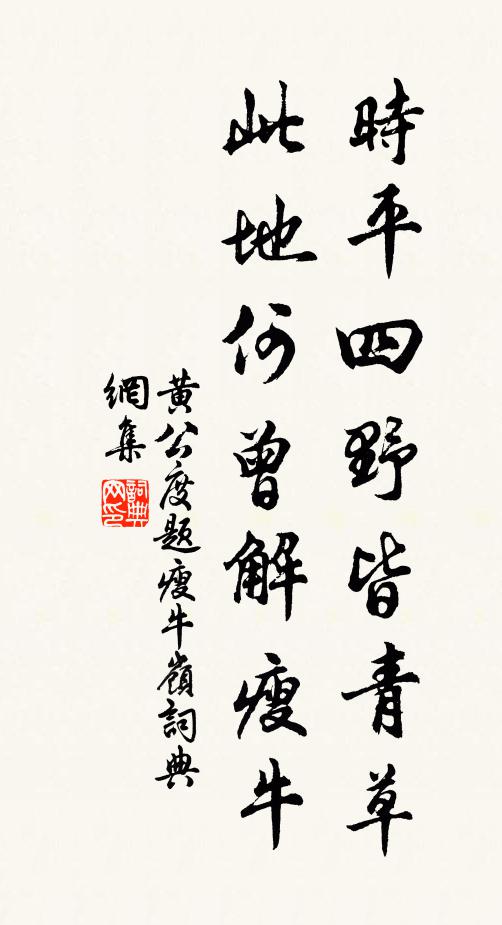 時平四野皆青草
此地何曾解瘦牛
黄公度题瘦牛嶺詞典
網集
詞典网印